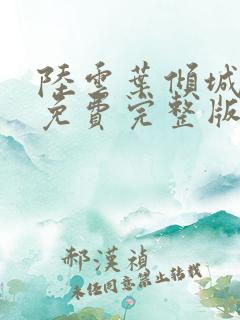 陸雲葉傾城
免費完整版
郝漢禎
未經同意禁止轉載